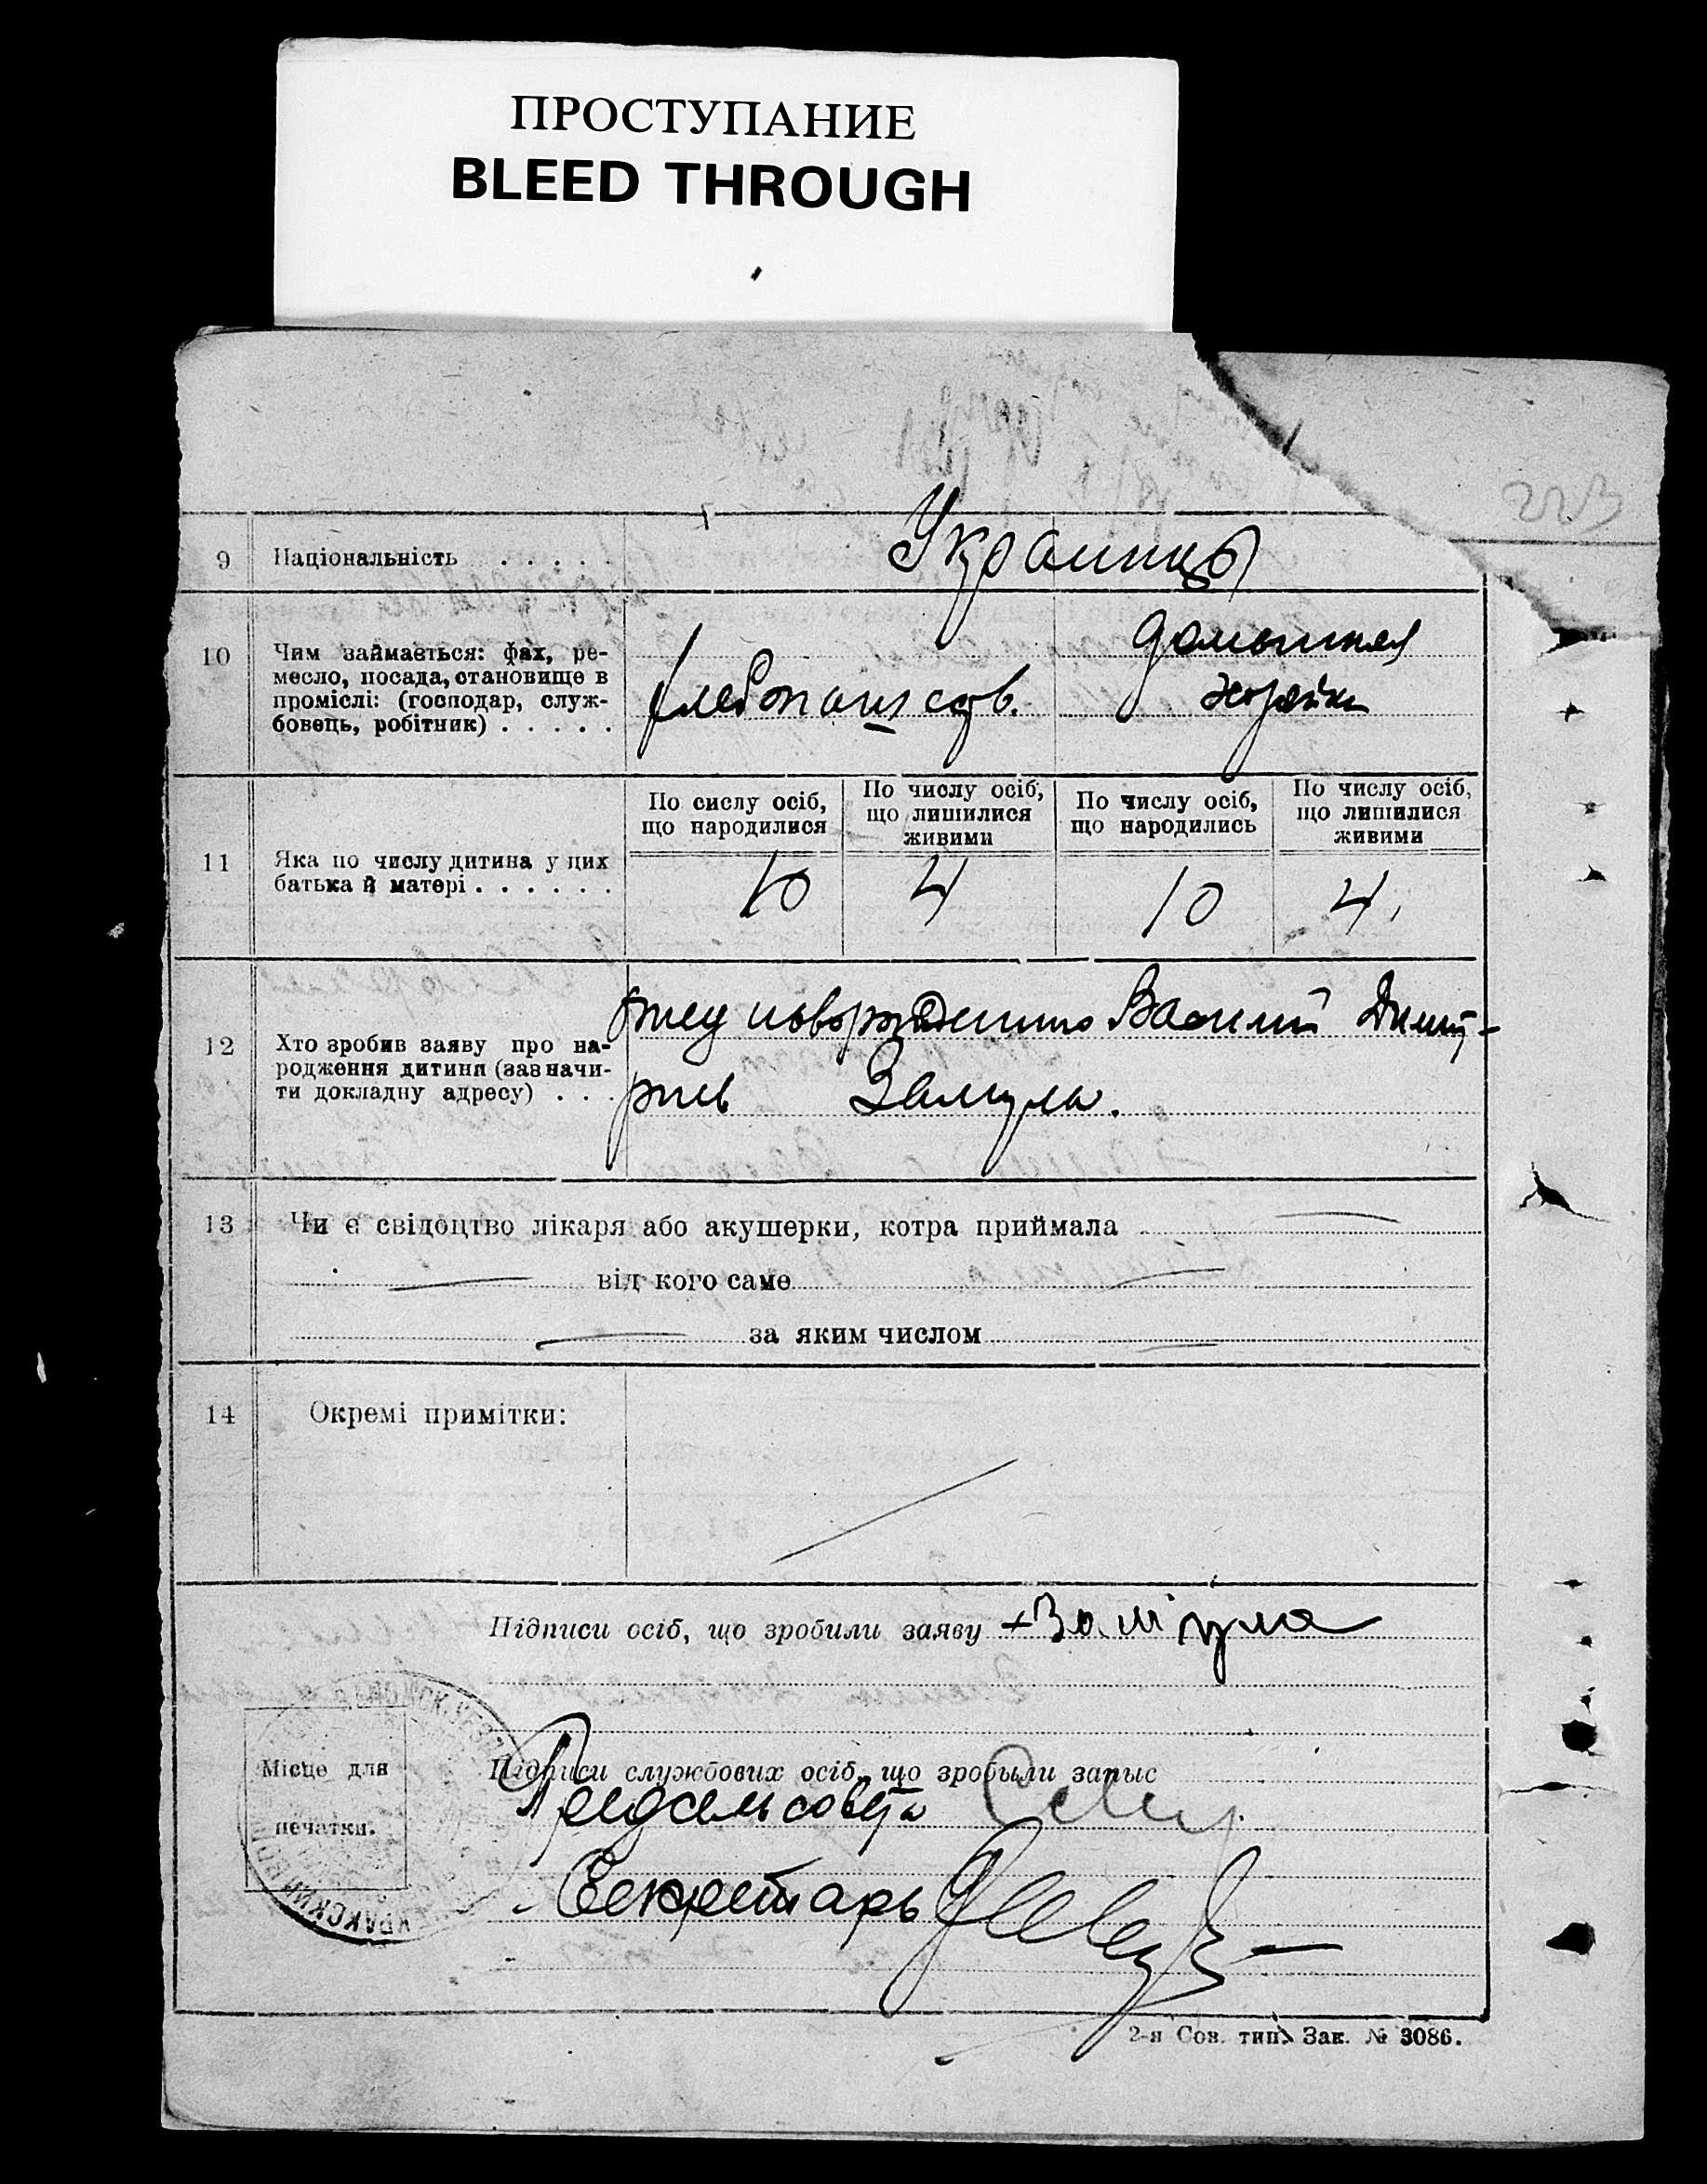 ПРОСТУПАНИЕ
BLEED THROUGH
223
9 Національність . . . . . Украинцы
10 Чим займається: фах, ре-
месло, посада, становище в
проміслі: (господар, служ-
бовець, робітник) . . . . .
хлебопашеств.
домашняя
хозяйка
По сислу осіб,
що народилися
По числу осіб,
що лишилися
живими
По числу осіб,
що народились
По числу осіб,
що лишилися
живими
11 Яка по числу дитина у цих
батька й матері . . . . . .
10 4 10 4
12 Хто зробив заяву про на-
родження дитини (зазначи-
ти докладну адресу) . . .
Василий Дмит-
риев Замула.
13 Чи є свідоцтво лікаря або акушерки, котра приймала
від кого саме
за яким числом
14 Окремі примітки:
Підписи осіб, що зробили заяву +Замула
Місце для
печатки.
Підписи службових осіб, що зробыли запыс
Предсельсовета
Секретарь
2-я Сов. тип. Зак. № 3086.